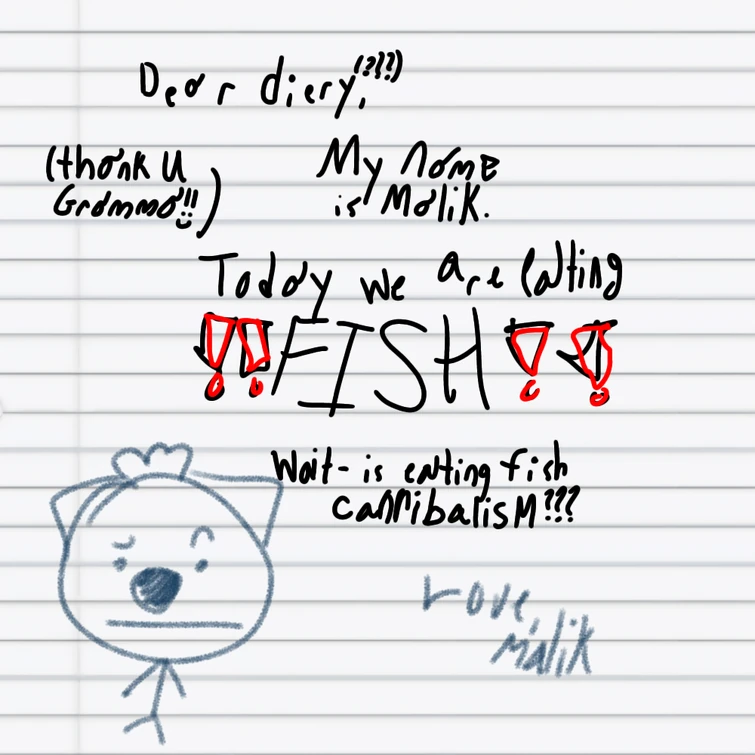 Dear diery,(???)
(thank U
Gramma!!)
My name
is Malik.
Today we are eating
!!FISH!!
Wait- is eating fish
cannibalism???
Love,
Malik